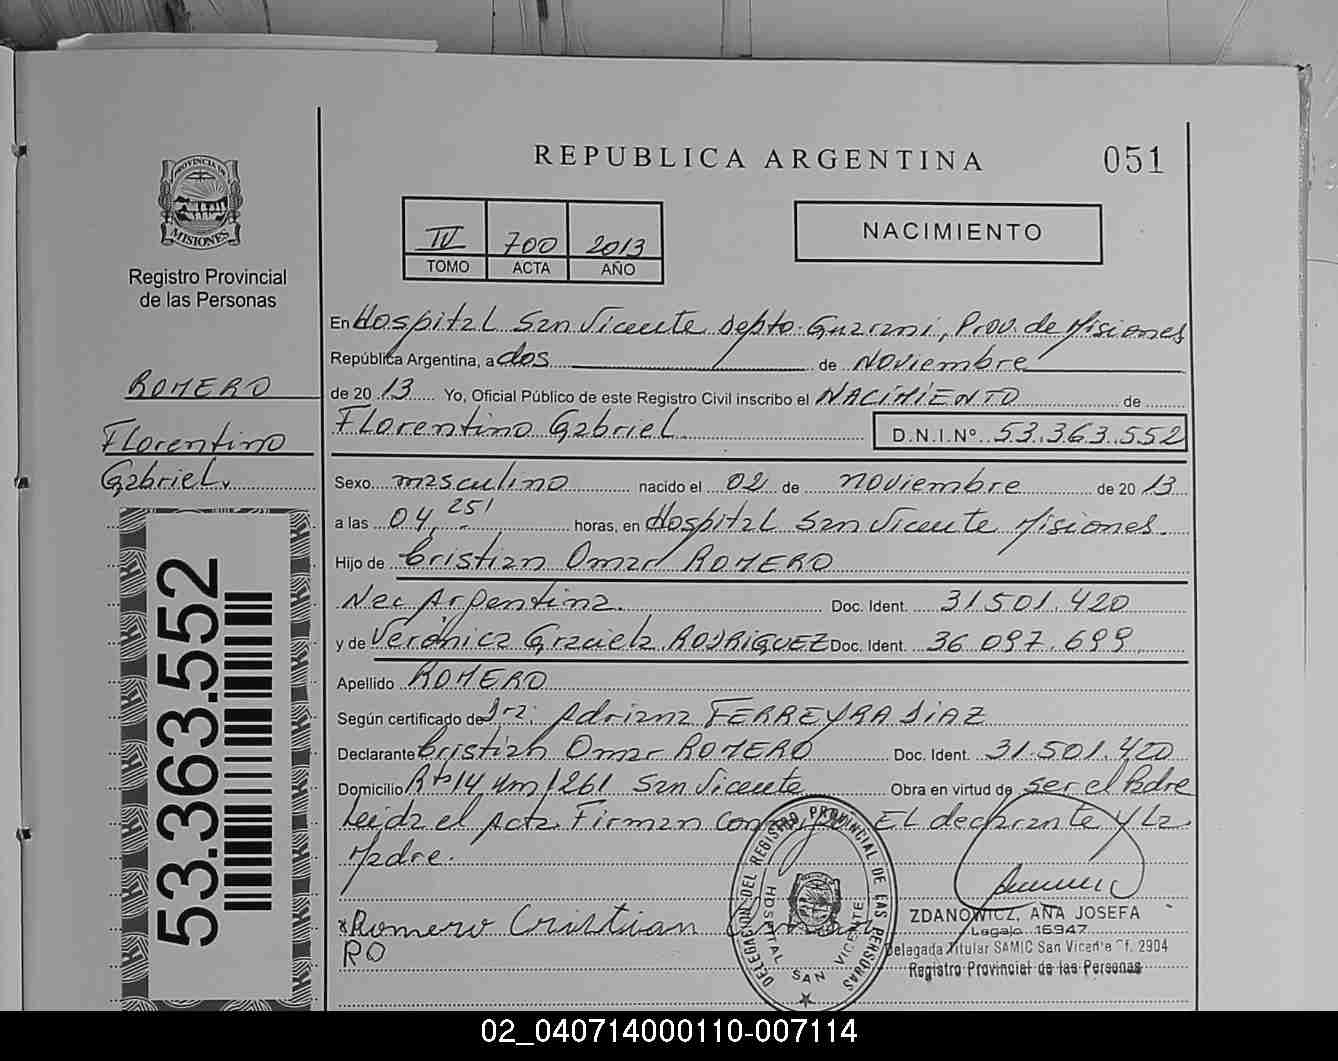 REPUBLICA ARGENTINA
051
PROVINCIA DE
MISIONES
Registro Provincial
de las Personas
IV 700 2013
TOMO ACTA AÑO
NACIMIENTO
En Hospital San Vicente Depto. Guarani, Prov. de Misiones
República Argentina, a dos de Noviembre
de 20 13 Yo, Oficial Público de este Registro Civil inscribo el NACIMIENTO de
Florentino Gabriel D.N.I.Nº 53.363.552
ROMERO
Florentino
Gabriel.
53.363.552
Sexo masculino nacido el 02 de noviembre de 20 13
a las 04,25' horas, en Hospital San Vicente Misiones.
Hijo de Cristian Omar ROMERO
Nac Argentina. Doc. Ident. 31.501.420
y de Verónica Graciela RODRIGUEZ Doc. Ident. 36.097.699
Apellido ROMERO
Según certificado de Dra. Adriana FERREYRA DIAZ
Declarante Cristian Omar ROMERO Doc. Ident. 31.501.420
Domicilio Rta 14 Km 1261 San Vicente Obra en virtud de ser el Padre
Leida el Acta Firman El declarante y La
Madre.
Romero Cristian
RO
DELEGACIÓN DEL REGISTRO PROVINCIAL DE LAS PERSONAS
HOSPITAL SAN VICENTE
ZDANOWICZ, ANA JOSEFA
Legajo 16947
Delegada Titular SAMIC San Vicente Of. 2904
Registro Provincial de las Personas
02_040714000110-007114